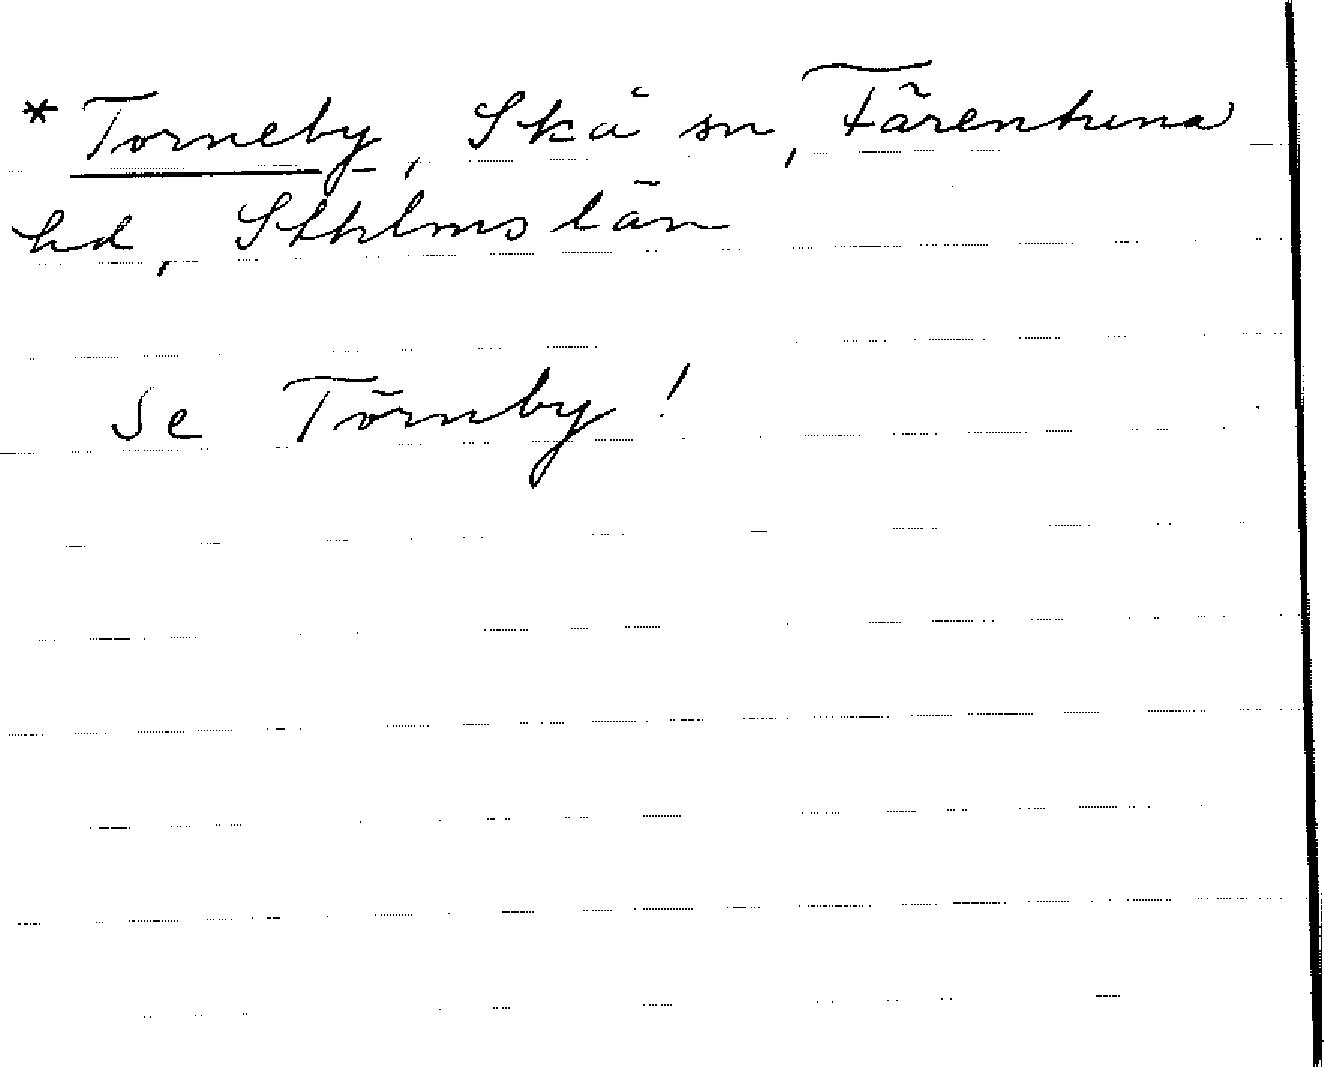 * Torneby, Skå sn, Färentuna
hd, Sthlms län
Se Törnby!